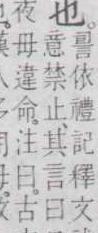 也。䛐依禮記釋文
意禁止、其言曰
夜毋違命。注曰。古